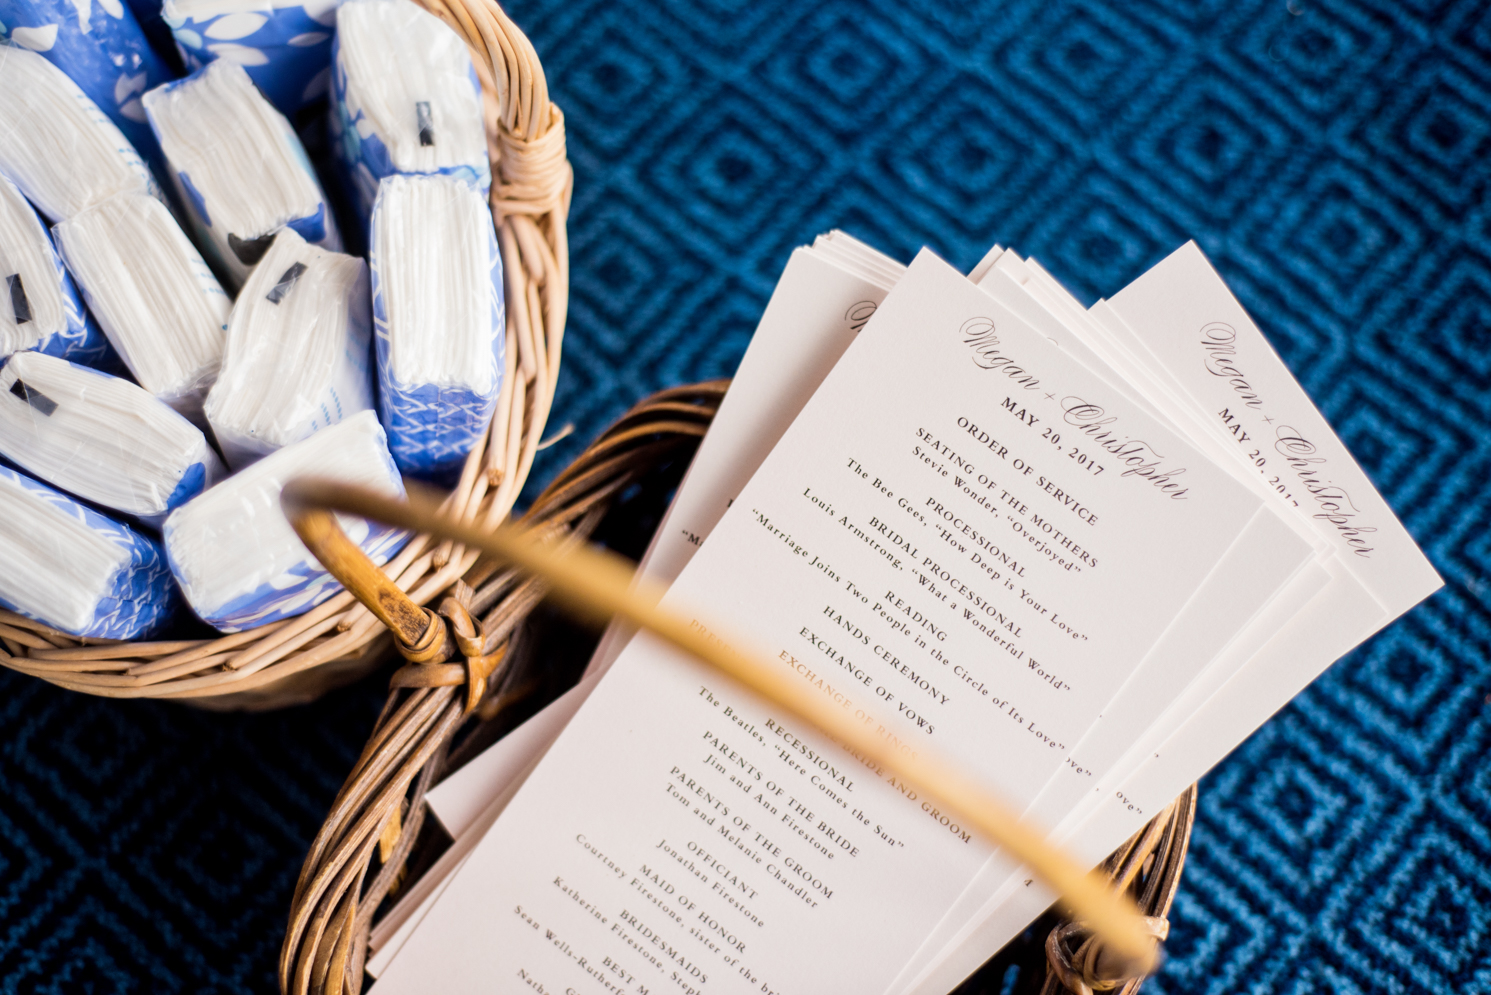 Megan + Christopher
MAY 20, 2017
ORDER OF SERVICE
SEATING OF THE MOTHERS
Stevie Wonder, “Overjoyed”
PROCESSIONAL
The Bee Gees, “How Deep is Your Love”
BRIDAL PROCESSIONAL
Louis Armstrong, “What a Wonderful World”
READING
“Marriage Joins Two People in the Circle of Its Love”
HANDS CEREMONY
EXCHANGE OF VOWS
EXCHANGE OF RINGS
BRIDE AND GROOM
RECESSIONAL
The Beatles, “Here Comes the Sun”
PARENTS OF THE BRIDE
Jim and Ann Firestone
PARENTS OF THE GROOM
Tom and Melanie Chandler
OFFICIANT
Jonathan Firestone
MAID OF HONOR
Courtney Firestone, sister of the bri
BRIDESMAIDS
Katherine Firestone, Steph
BEST M
Sean Wells-Rutherf
G
Natha
Megan + Christopher
MAY 20, 2017
ove”
ove”
“Ma